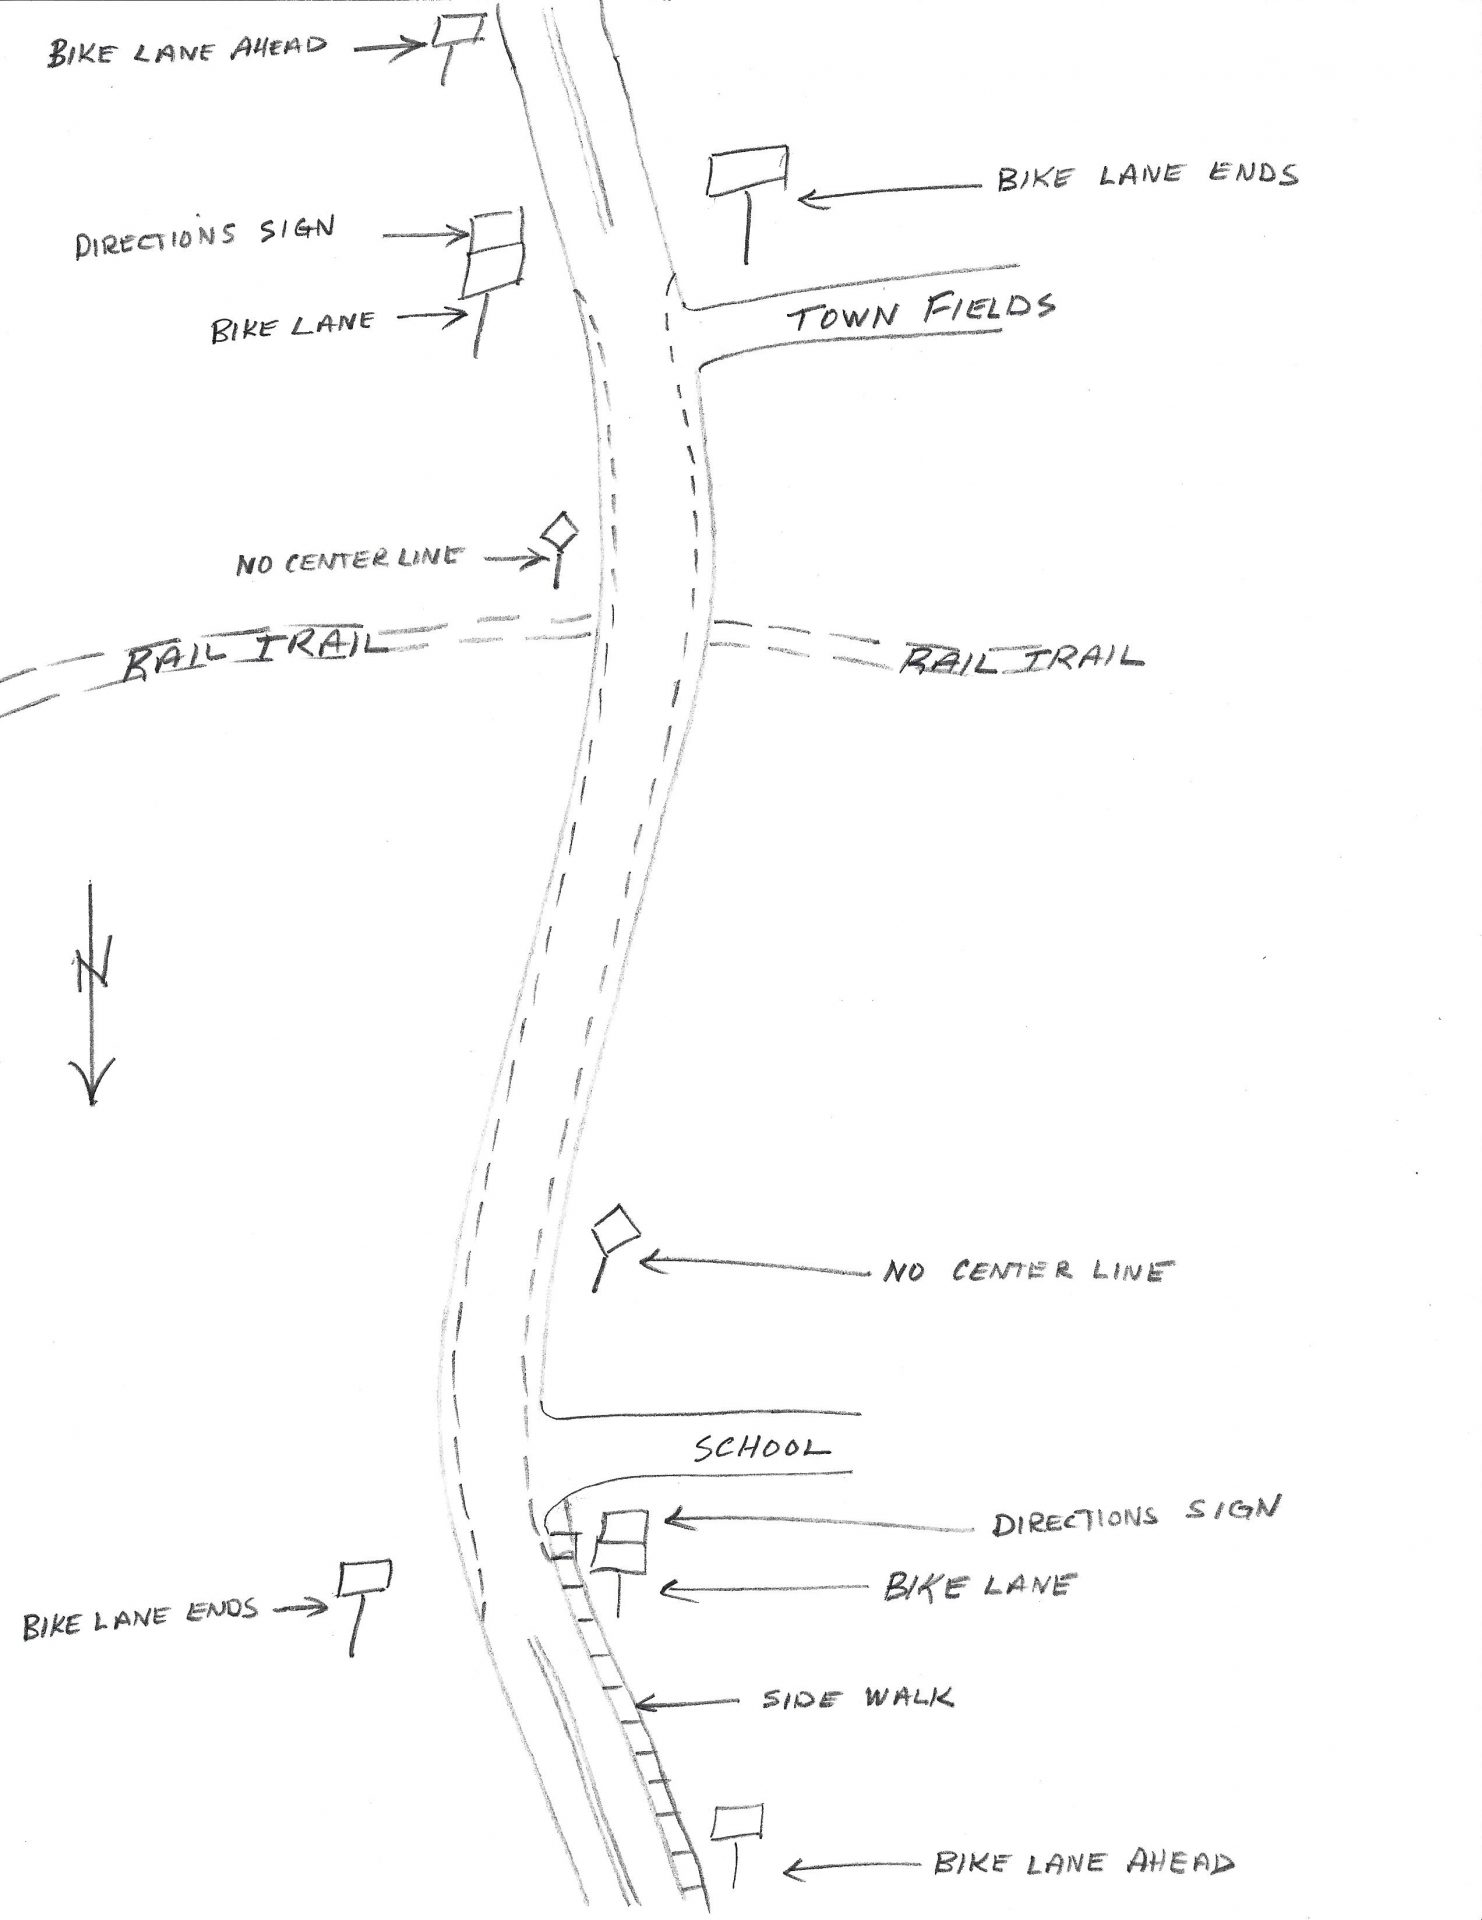 BIKE LANE AHEAD
BIKE LANE ENDS
DIRECTIONS SIGN
BIKE LANE
TOWN FIELDS
NO CENTER LINE
RAIL TRAIL
RAIL TRAIL
N
NO CENTER LINE
SCHOOL
DIRECTIONS SIGN
BIKE LANE
BIKE LANE ENDS
SIDE WALK
BIKE LANE AHEAD